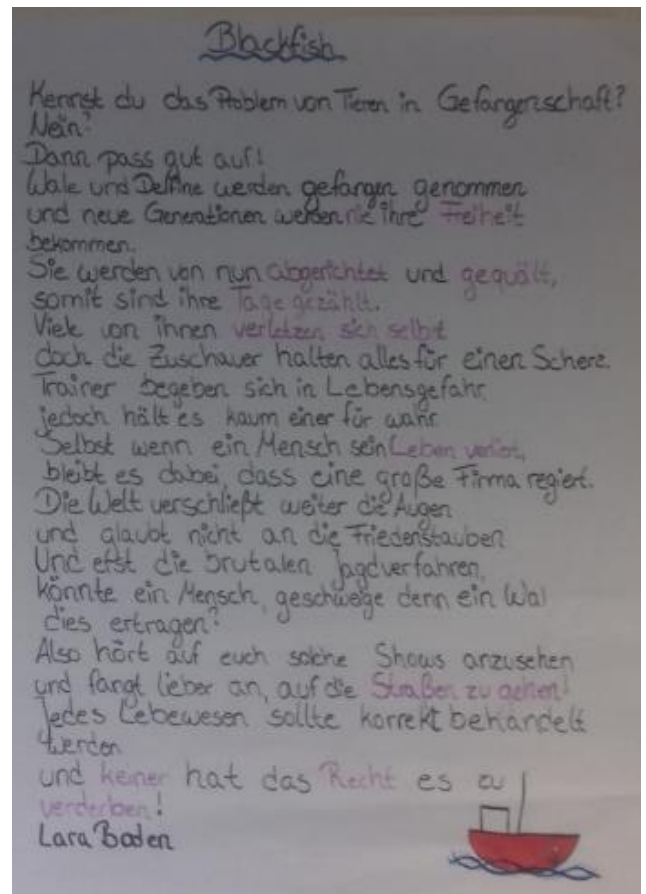 Blackfish
Kennst du das Problem von Tieren in Gefangenschaft?
Nein?
Dann pass gut auf!
Wale und Delfine werden gefangen genommen
und neue Generationen werden nie ihre Freiheit
bekommen.
Sie werden von nun abgerichtet und gequält,
somit sind ihre Tage gezählt.
Viele von ihnen verletzen sich selbst
doch die Zuschauer halten alles für einen Scherz.
Trainer begeben sich in Lebensgefahr,
jedoch hält es kaum einer für wahr.
Selbst wenn ein Mensch sein Leben verliert,
bleibt es dabei, dass eine große Firma regiert.
Die Welt verschließt weiter die Augen
und glaubt nicht an die Friedenstauben
Und erst die brutalen Jagdverfahren,
könnte ein Mensch, geschweige denn ein Wal
dies ertragen?
Also hört auf euch solche Shows anzusehen
und fangt lieber an, auf die Straßen zu gehen!
Jedes Lebewesen sollte korrekt behandelt
werden
und keiner hat das Recht es zu
verderben!
Lara Boden